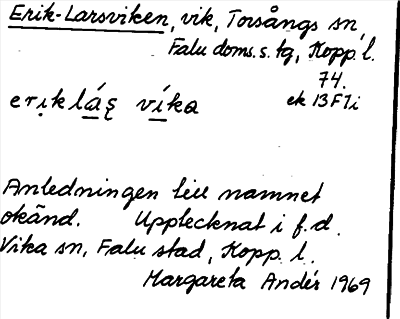 Erik-Larsviken, vik, Torsångs sn,
Falu doms.s. tg, Kopp. l.
74.
erịklá̱ę ví̱ka ek 13F7i
Anledningen till namnet
okänd. Upptecknat i f.d.
Vika sn, Falu stad, Kopp. l.
Margareta Andér 1969